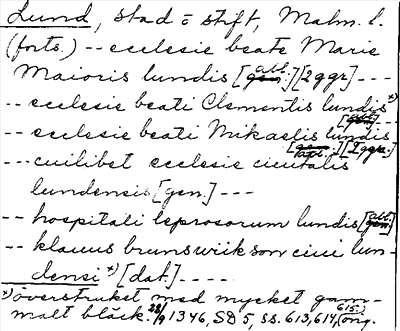 Lund, stad o stift, Malm. l.
(forts.) -- ecclesie beate Marie
Maioris lundis [abl.] [2 ggr] ----
-- ecclesie beati Clementis lundis x)
[abl.]
-- ecclesie beati Mikaelis lundis
[abl.] [2 ggr.]
--- cuilibet ecclesie ciuitatis
lundensis [gen.] ---
-- hospitali leprosorum lundis [abl.]
-- klauus brunswiikson ciui lun-
densi x) [dat.] ----
x) överstruket med mycket gam-
malt bläck. 22/9 1346, SD 5, ss. 613, 614, 615; orig.